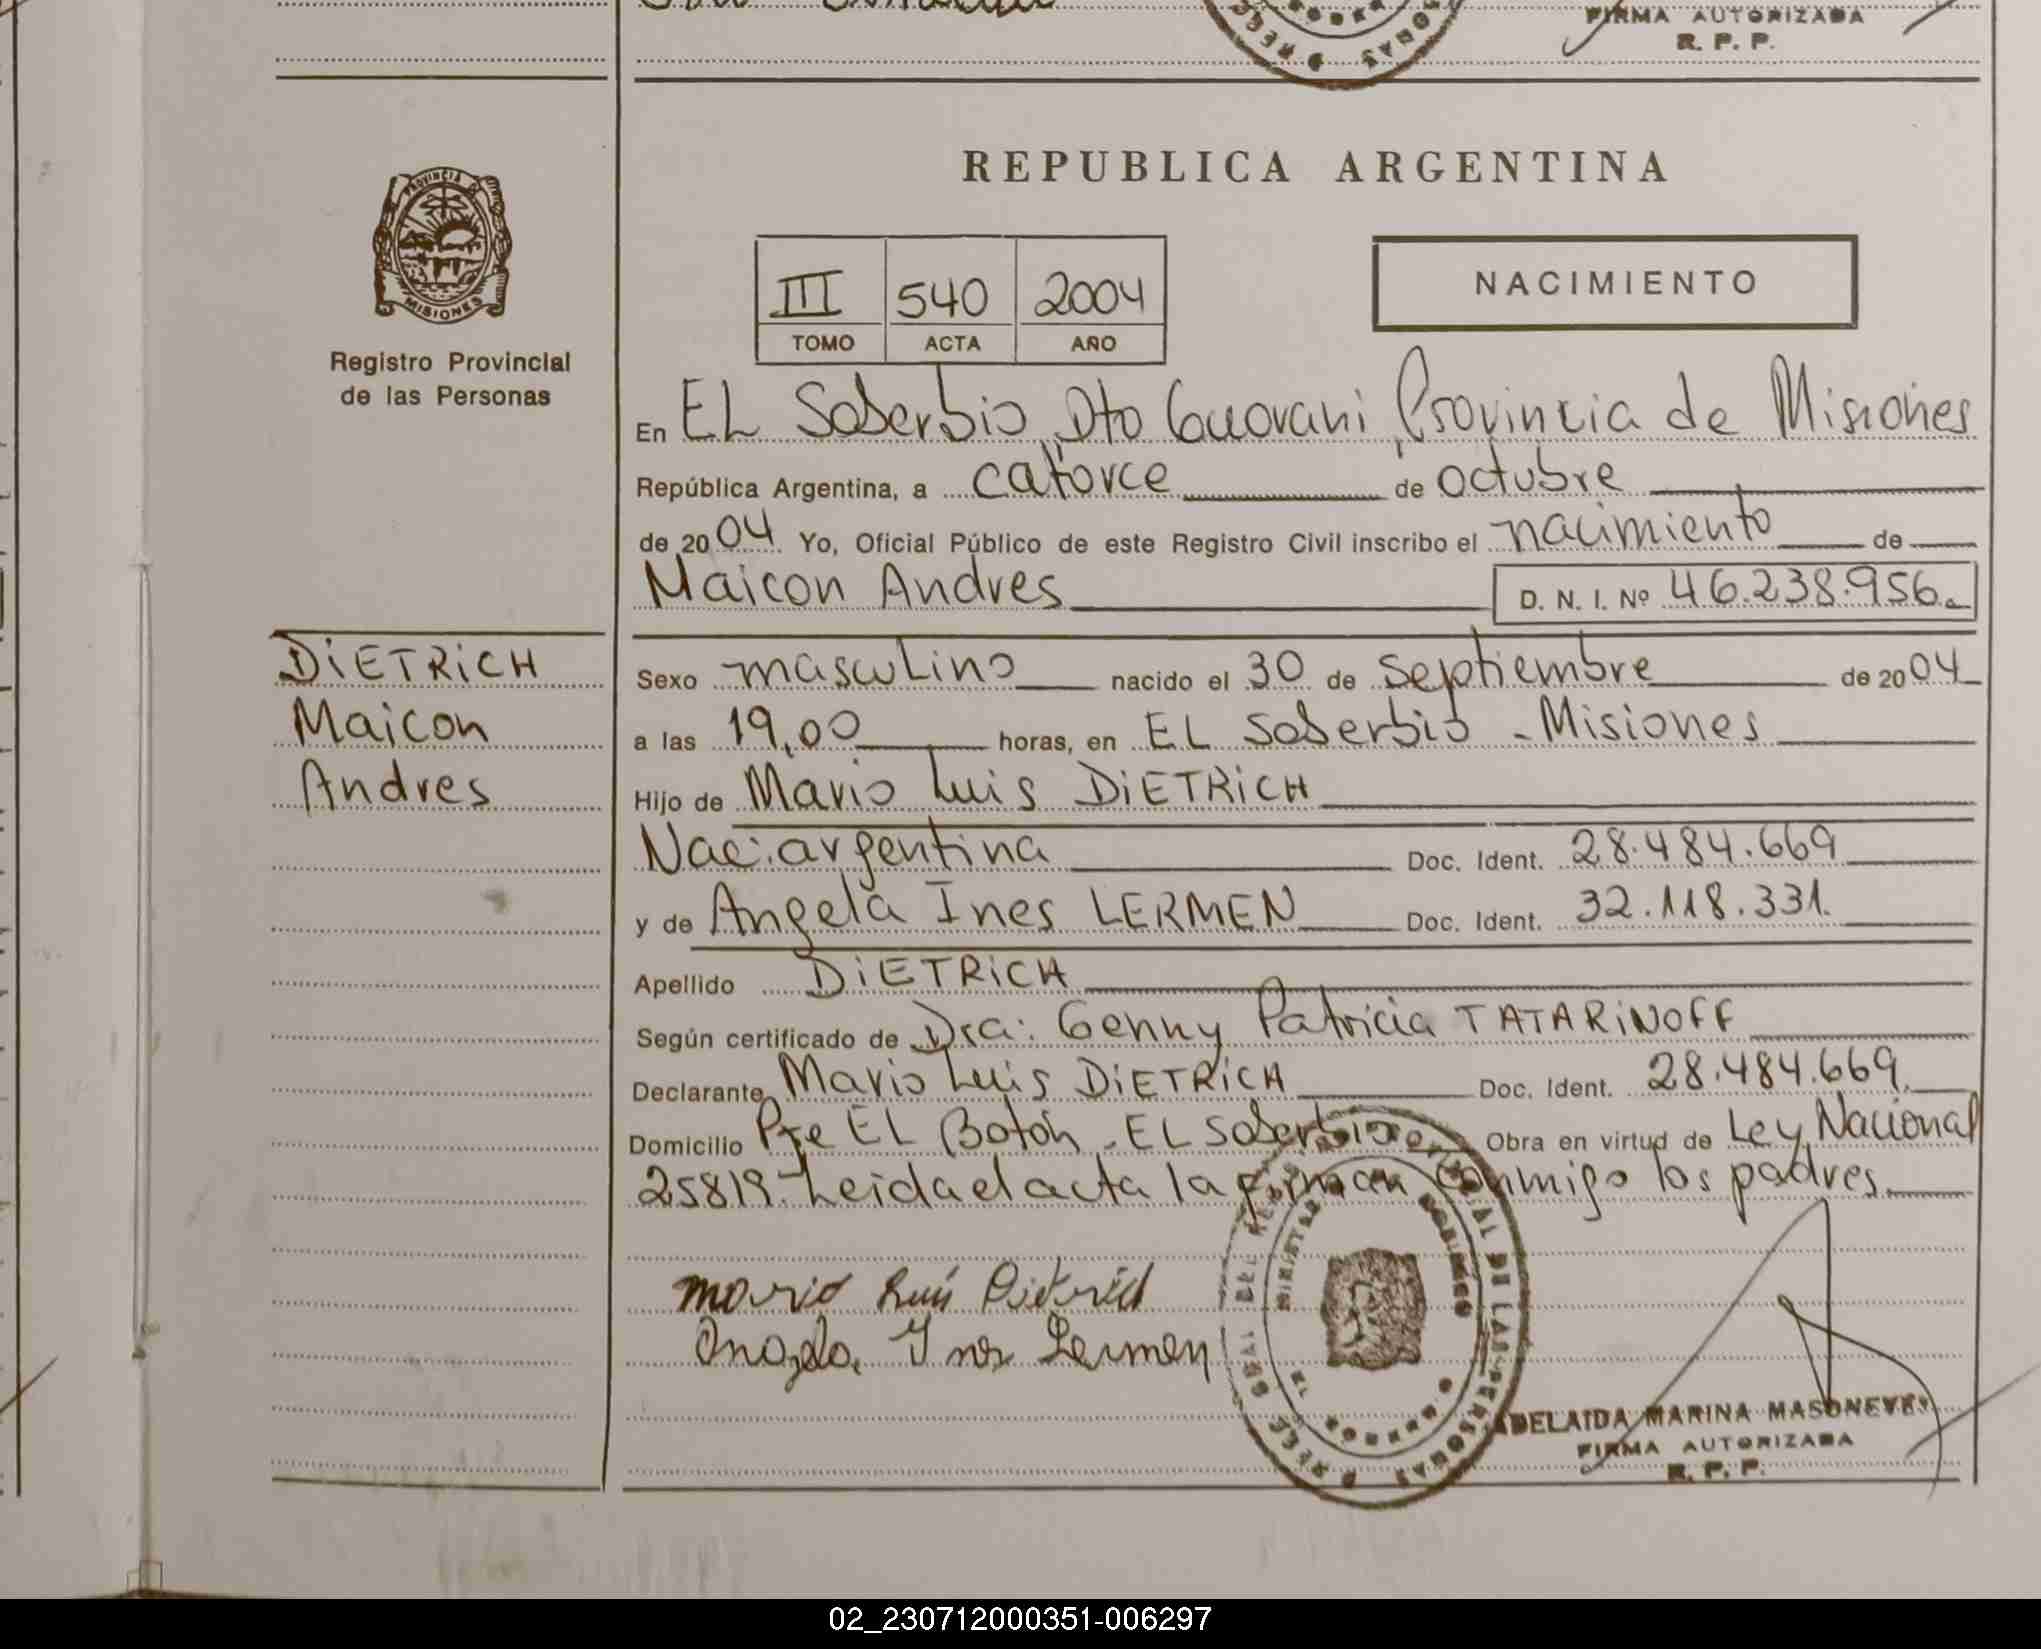 FIRMA AUTORIZADA
R. P. P.
PROVINCIA DE
MISIONES
Registro Provincial
de las Personas
REPUBLICA ARGENTINA
III 540 2004
TOMO ACTA AÑO
NACIMIENTO
En EL Soberbio Dto Guarani Provincia de Misiones
República Argentina, a catorce de octubre
de 2004 Yo, Oficial Público de este Registro Civil inscribo el nacimiento de
Maicon Andres D. N. I. Nº 46.238.956.
DiETRiCH
Maicon
Andres
Sexo masculino nacido el 30 de septiembre de 2004
a las 19,00 horas, en EL Soberbio - Misiones
Hijo de Mario Luis DiETRiCH
Nac. argentina Doc. Ident. 28.484.669
y de Angela Ines LERMEN Doc. Ident. 32.118.331.
Apellido DiETRiCH
Según certificado de Dra: Genny Patricia TATARiNOFF
Declarante Mario Luis DiETRiCH Doc. Ident. 28.484.669.
Domicilio Pje EL Botón - EL Soberbio Obra en virtud de Ley Nacional
25819.- Leida el acta la firman conmigo los padres.
Mario Luis Dietrich
Angela Ines Lermen
ADELAIDA MARINA MASONEVES
FIRMA AUTORIZADA
R. P. P.
02_230712000351-006297